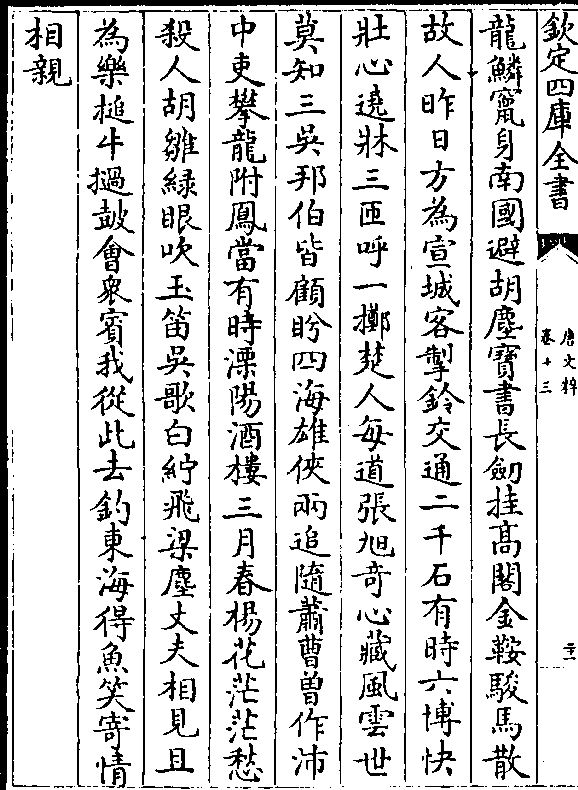 欽定四庫全書
唐文粹
卷十三
龍鱗竄身南國避胡塵寶書長劍挂髙閣金鞍駿馬散
故人昨日方為宣城客掣鈴交通二千石有時六博快
壯心遶牀三匝呼一擲楚人每道張旭竒心藏風雲世
莫知三吳邦伯皆顧盼四海雄俠兩追隨蕭曹曽作沛
中吏攀龍附鳳當有時溧陽酒樓三月春楊花茫茫愁
殺人胡雛緑眼吹玉笛吳歌白紵飛梁塵丈夫相見且
為樂搥牛撾鼓會衆賓我從此去釣東海得魚笑寄情
相親